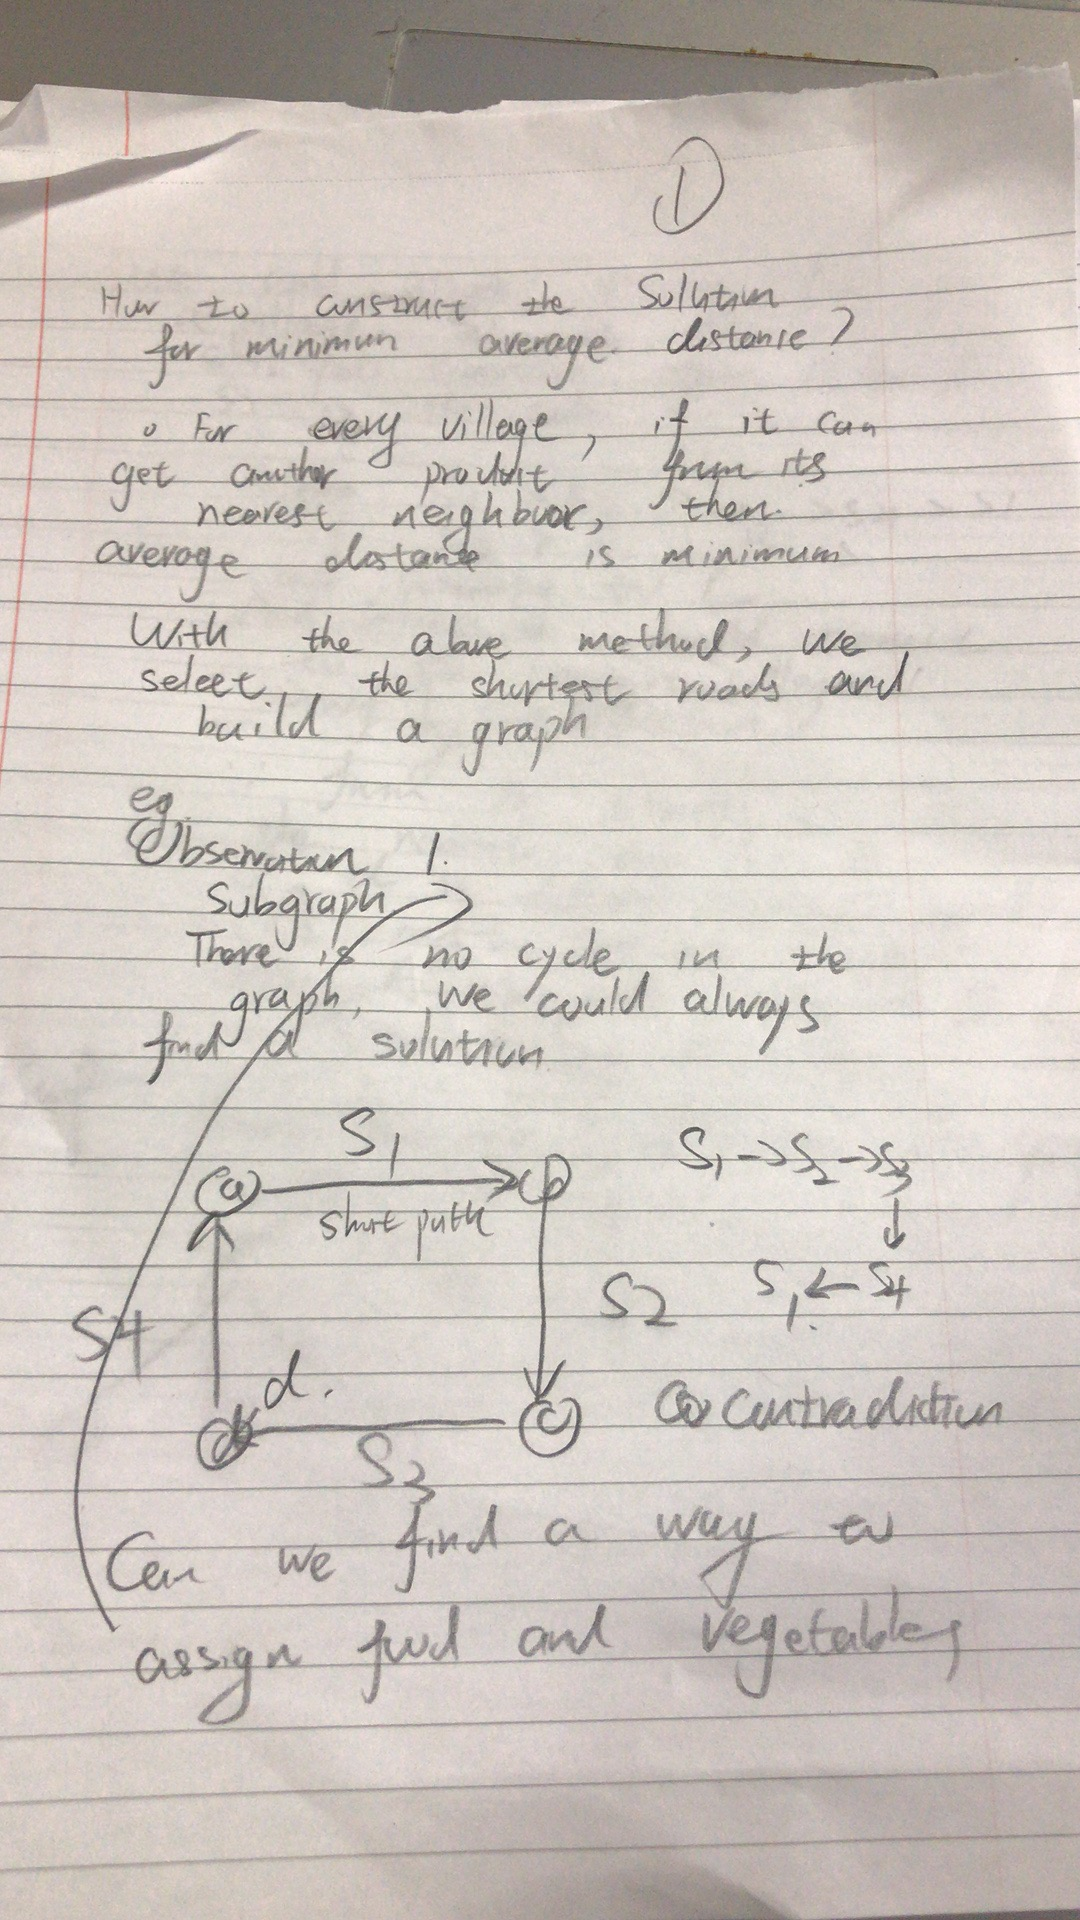 ①
How to construct the Solution
for minimun average distance?
o For every village, if it can
get another product from its
nearest neighbour, then
average distance is minimum
With the above method, we
select, the shortest roads and
build a graph
eg
Observation 1.
Subgraph
There is no cycle in the
graph, we could always
find a solution
S1
a short path b
S1 → S2 → S3
↓
S1 ← S4
S4 S2
d.
c
S3
Contradiction
Can we find a way to
assign food and vegetables